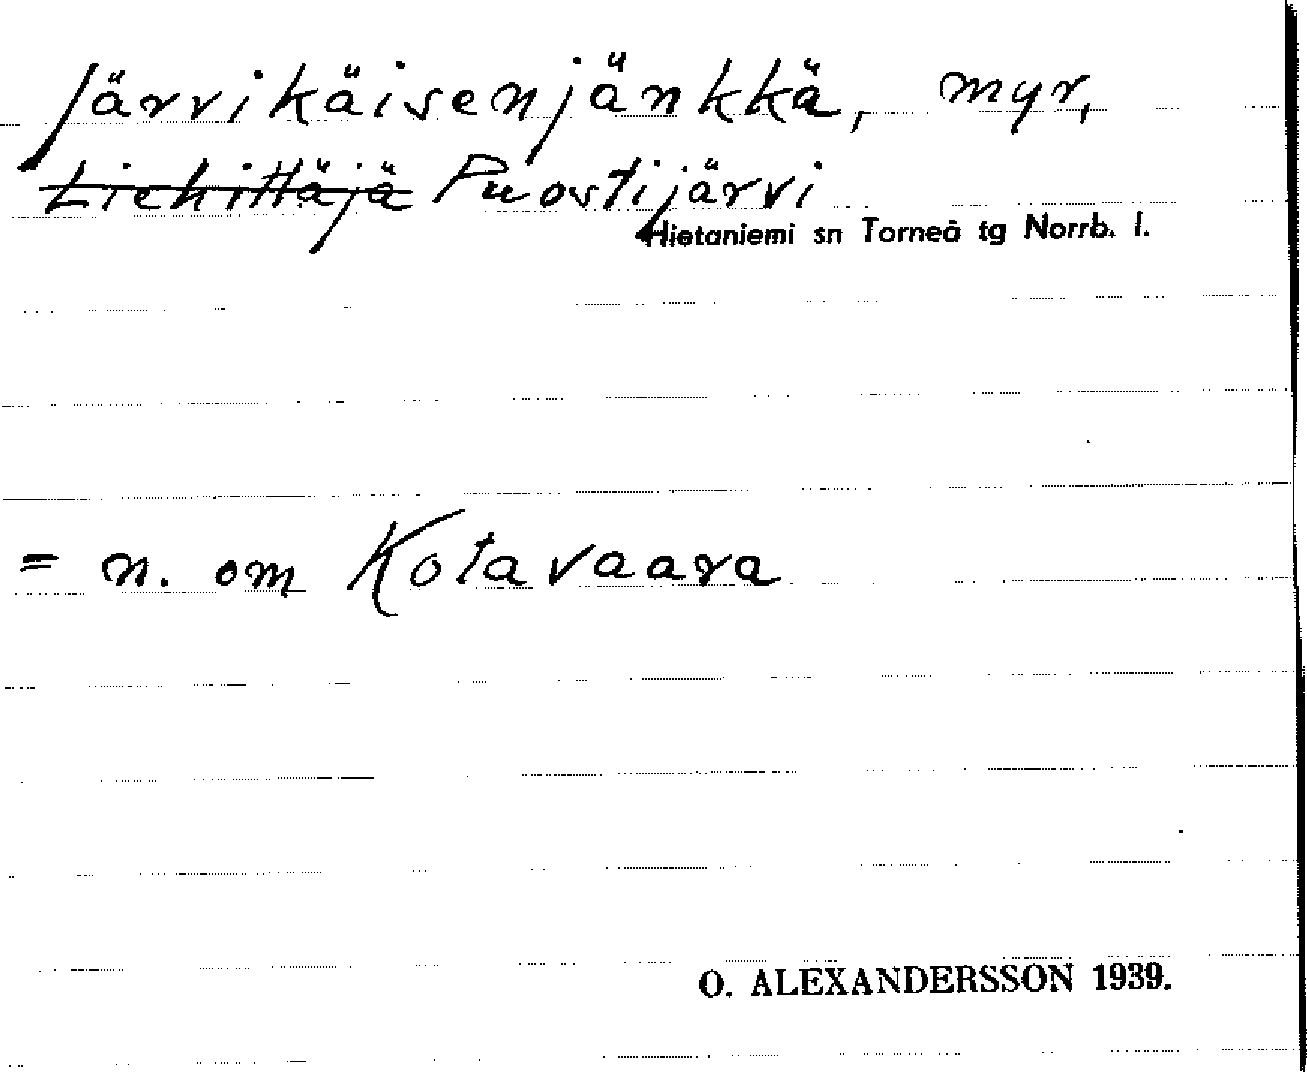 Järvikäisenjänkkä, myr,
Liehittäjä Puostijärvi
Hietaniemi sn Torneå tg Norrb. l.
= n. om Kotavaara
O. ALEXANDERSSON 1939.